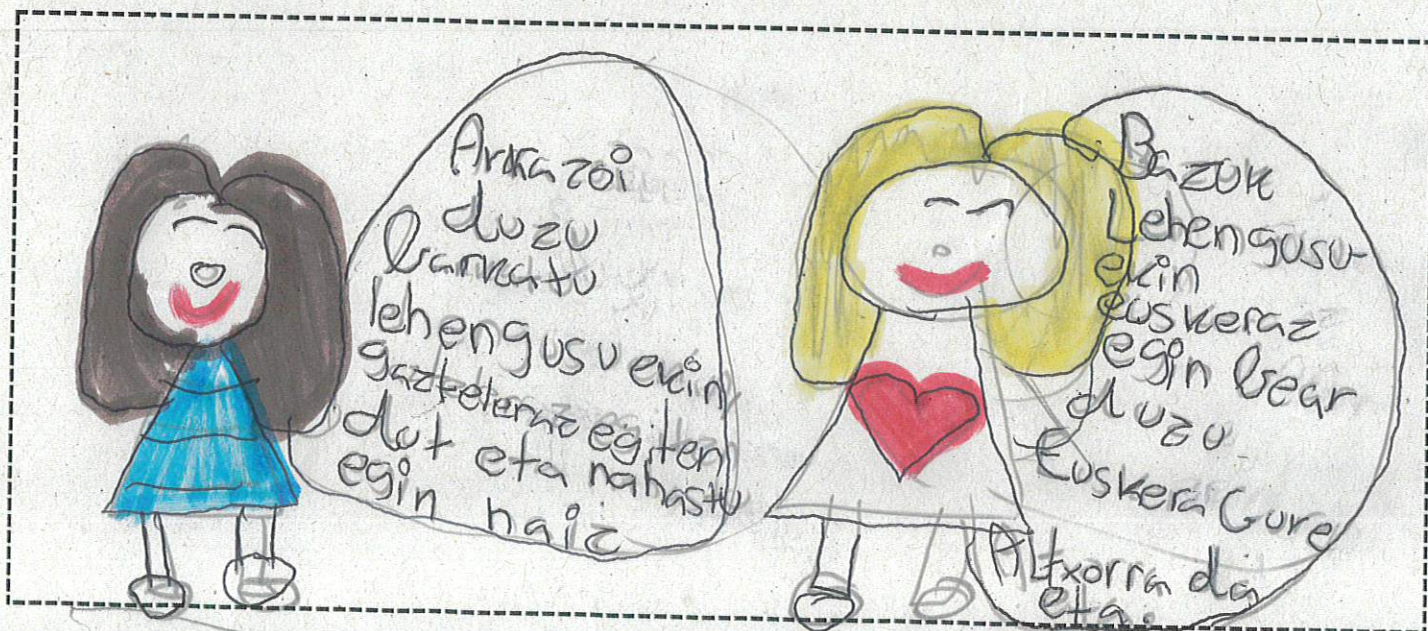 Arrazoi
duzu
barkatu
lehengusuekin
gazteleraz egiten
dut eta nahastu
egin naiz
Bazuk
Lehengusu-
ekin
euskeraz
egin bear
duzu
Euskera Gure
Altxorra da
eta.